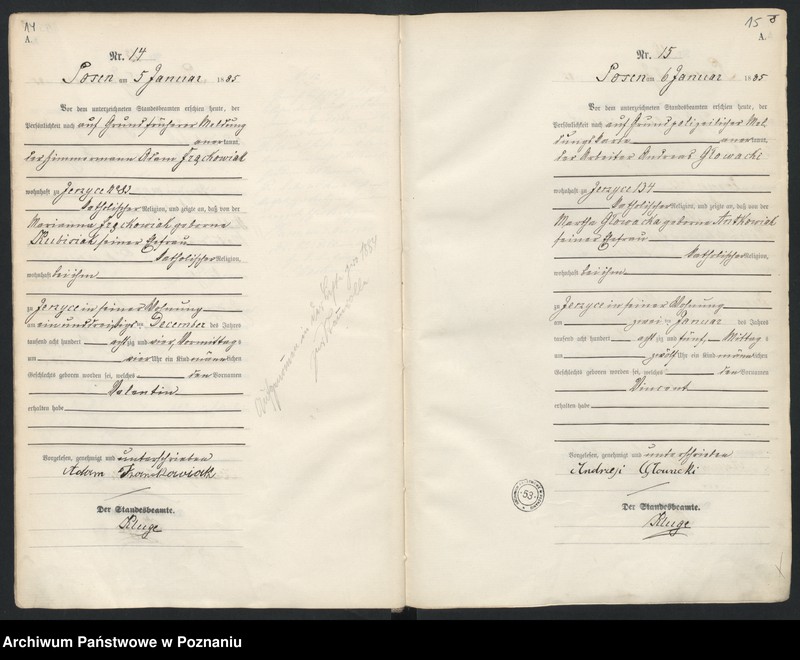 14
A.
Nr. 14
Posen am 5 Januar 1885
Vor dem unterzeichneten Standesbeamten erschien heute, der
Persönlichkeit nach auf Grund früherer Meldung
anerkannt,
der Zimmermann Adam Frąckowiak
wohnhaft zu Jerzyce
katholischer Religion, und zeigte an, daß von der
Marianna Frąckowiak geborene
Kubiciak seiner Ehefrau
katholischer Religion,
wohnhaft bei ihm
zu Jerzyce in seiner Wohnung
am ein und dreißigsten December des Jahres
tausend acht hundert acht zig und vier, Vormittags
um vier Uhr ein Kind männlichen
Geschlechts geboren worden sei, welches den Vornamen
Valentin
erhalten habe
Vorgelesen, genehmigt und unterschrieben
Adam Frankowiak
Der Standesbeamte.
Kluge
15
A.
Nr. 15
Posen am 6 Januar 1885
Vor dem unterzeichneten Standesbeamten erschien heute, der
Persönlichkeit nach auf Grund polizeilicher Mel
dungskarte anerkannt,
der Arbeiter Andreas Glowacki
wohnhaft zu Jerzyce 134
katholischer Religion, und zeigte an, daß von der
Martha Glowacka geborene Antkowiak
seiner Ehefrau
katholischer Religion,
wohnhaft bei ihm
zu Jerzyce in seiner Wohnung
am zweiten Januar des Jahres
tausend acht hundert acht zig und fünf, Mittags
um zwölf Uhr ein Kind männlichen
Geschlechts geboren worden sei, welches den Vornamen
Vincent
erhalten habe
Vorgelesen, genehmigt und unterschrieben
Andrzej Głowacki
53
Der Standesbeamte.
Kluge
Archiwum Państwowe w Poznaniu